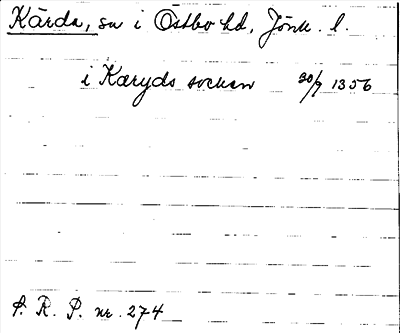 Kärda, sn i Östbo hd, Jönk. l.
i Kæryds socken 30/9 1356
S. R. P. nr. 274